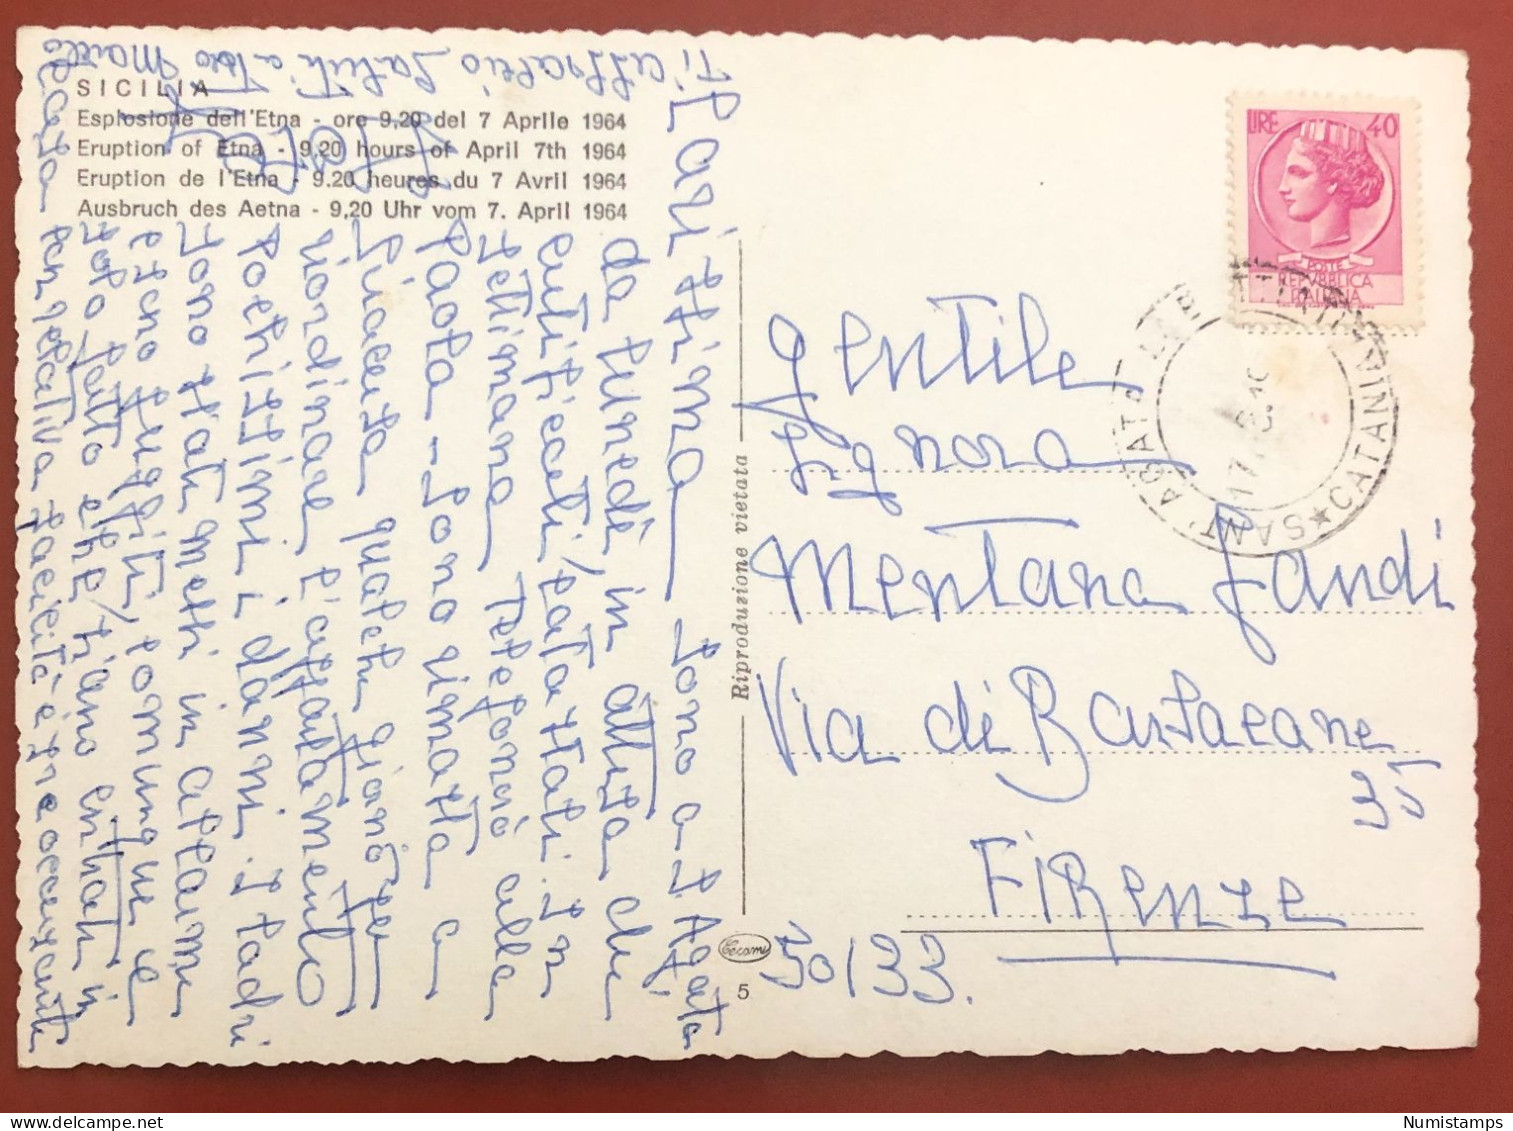 SICILIA
Esplosione dell'Etna - ore 9,20 del 7 Aprile 1964
Eruption of Etna - 9,20 hours of April 7th 1964
Eruption de l'Etna - 9.20 heures du 7 Avril 1964
Ausbruch des Aetna - 9,20 Uhr vom 7. April 1964
Carissima sono a S Agata
da lunedì in attesa che
In
settimana telefonerò alla
Paola - Sono rimasta a
Piacenza qualche giorno per
riordinare l'appartamento
pochissimi i danni. I ladri
sono stati messi in allarme
e sono fuggiti, comunque è
solo che siano entrati in
casa con relativa facilità è preoccupante
Ti abbraccio saluti a
LIRE 40
POSTE
REPVBBLICA
ITALIANA
SANT'AGATA
CATANIA
17
Gentile
Signora
Mentana Landi
Via di
35
FIRENZE
50133.
Riproduzione vietata
Cecami
5
Numistamps.com